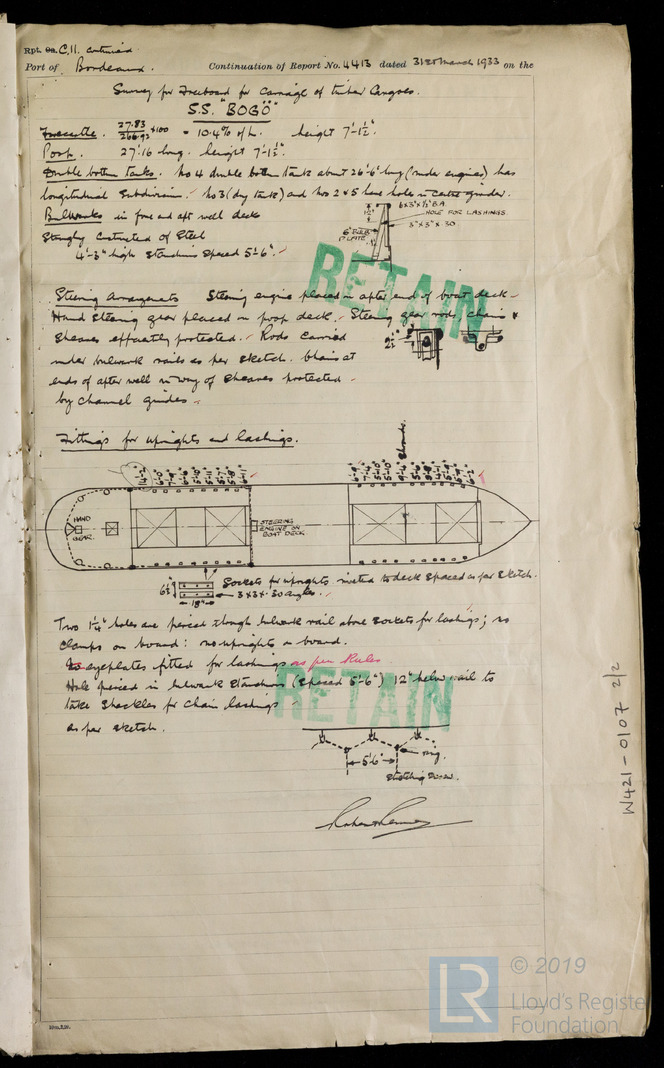 Rpt. C.11. continued
Port of Bordeaux. Continuation of Report No. 4413 dated 31st March 1933 on the
Survey for Freeboard for Carriage of timber Cargoes.
S.S. "BOGÖ"
Forecastle. 27.83/266.92 x100 = 10.4% of L. height 7'-1½".
Poop. 27.16 long. height 7'-1½".
Double bottom tanks. No 4 double bottom tank about 26'-6" long (under engines) has
longitudinal Subdivision. No 3 (dry tank) and Nos 2 & 5 have holes in centre girder.
Bulwarks in fore and aft well decks
Strongly Constructed of Steel
4'-3" high Stanchions Spaced 5'-6".
6x3"x½" B.A.
HOLE FOR LASHINGS
3"x3"x.30
6" BULB PLATE
RETAIN
Steering Arrangements Steering engine placed in after end of boat deck
Hand Steering gear placed on poop deck. Steering gear rods, chains &
Sheaves efficiently protected. Rods carried
under bulwark rails as per sketch. Chains at
ends of after well in way of Sheaves protected
by channel guides
Fittings for uprights and lashings.
Shrouds.
HAND GEAR.
STEERING ENGINE ON BOAT DECK
Sockets for uprights riveted to deck spaced as per sketch.
6½"
18"
3x3x.30 angles.
Two 1¼" holes are pierced through bulwark rail above sockets for lashings; no
clamps on board: no uprights on board.
eyeplates fitted for lashings as per Rules
Hole pierced in bulwark Stanchions (spaced 5'-6") 12" below rail to
take Shackles for chain lashings
as per sketch.
RETAIN
5'6"
ring.
Stretching Screw.
W421-0107 2/2
LR
© 2019
Lloyd's Register
Foundation